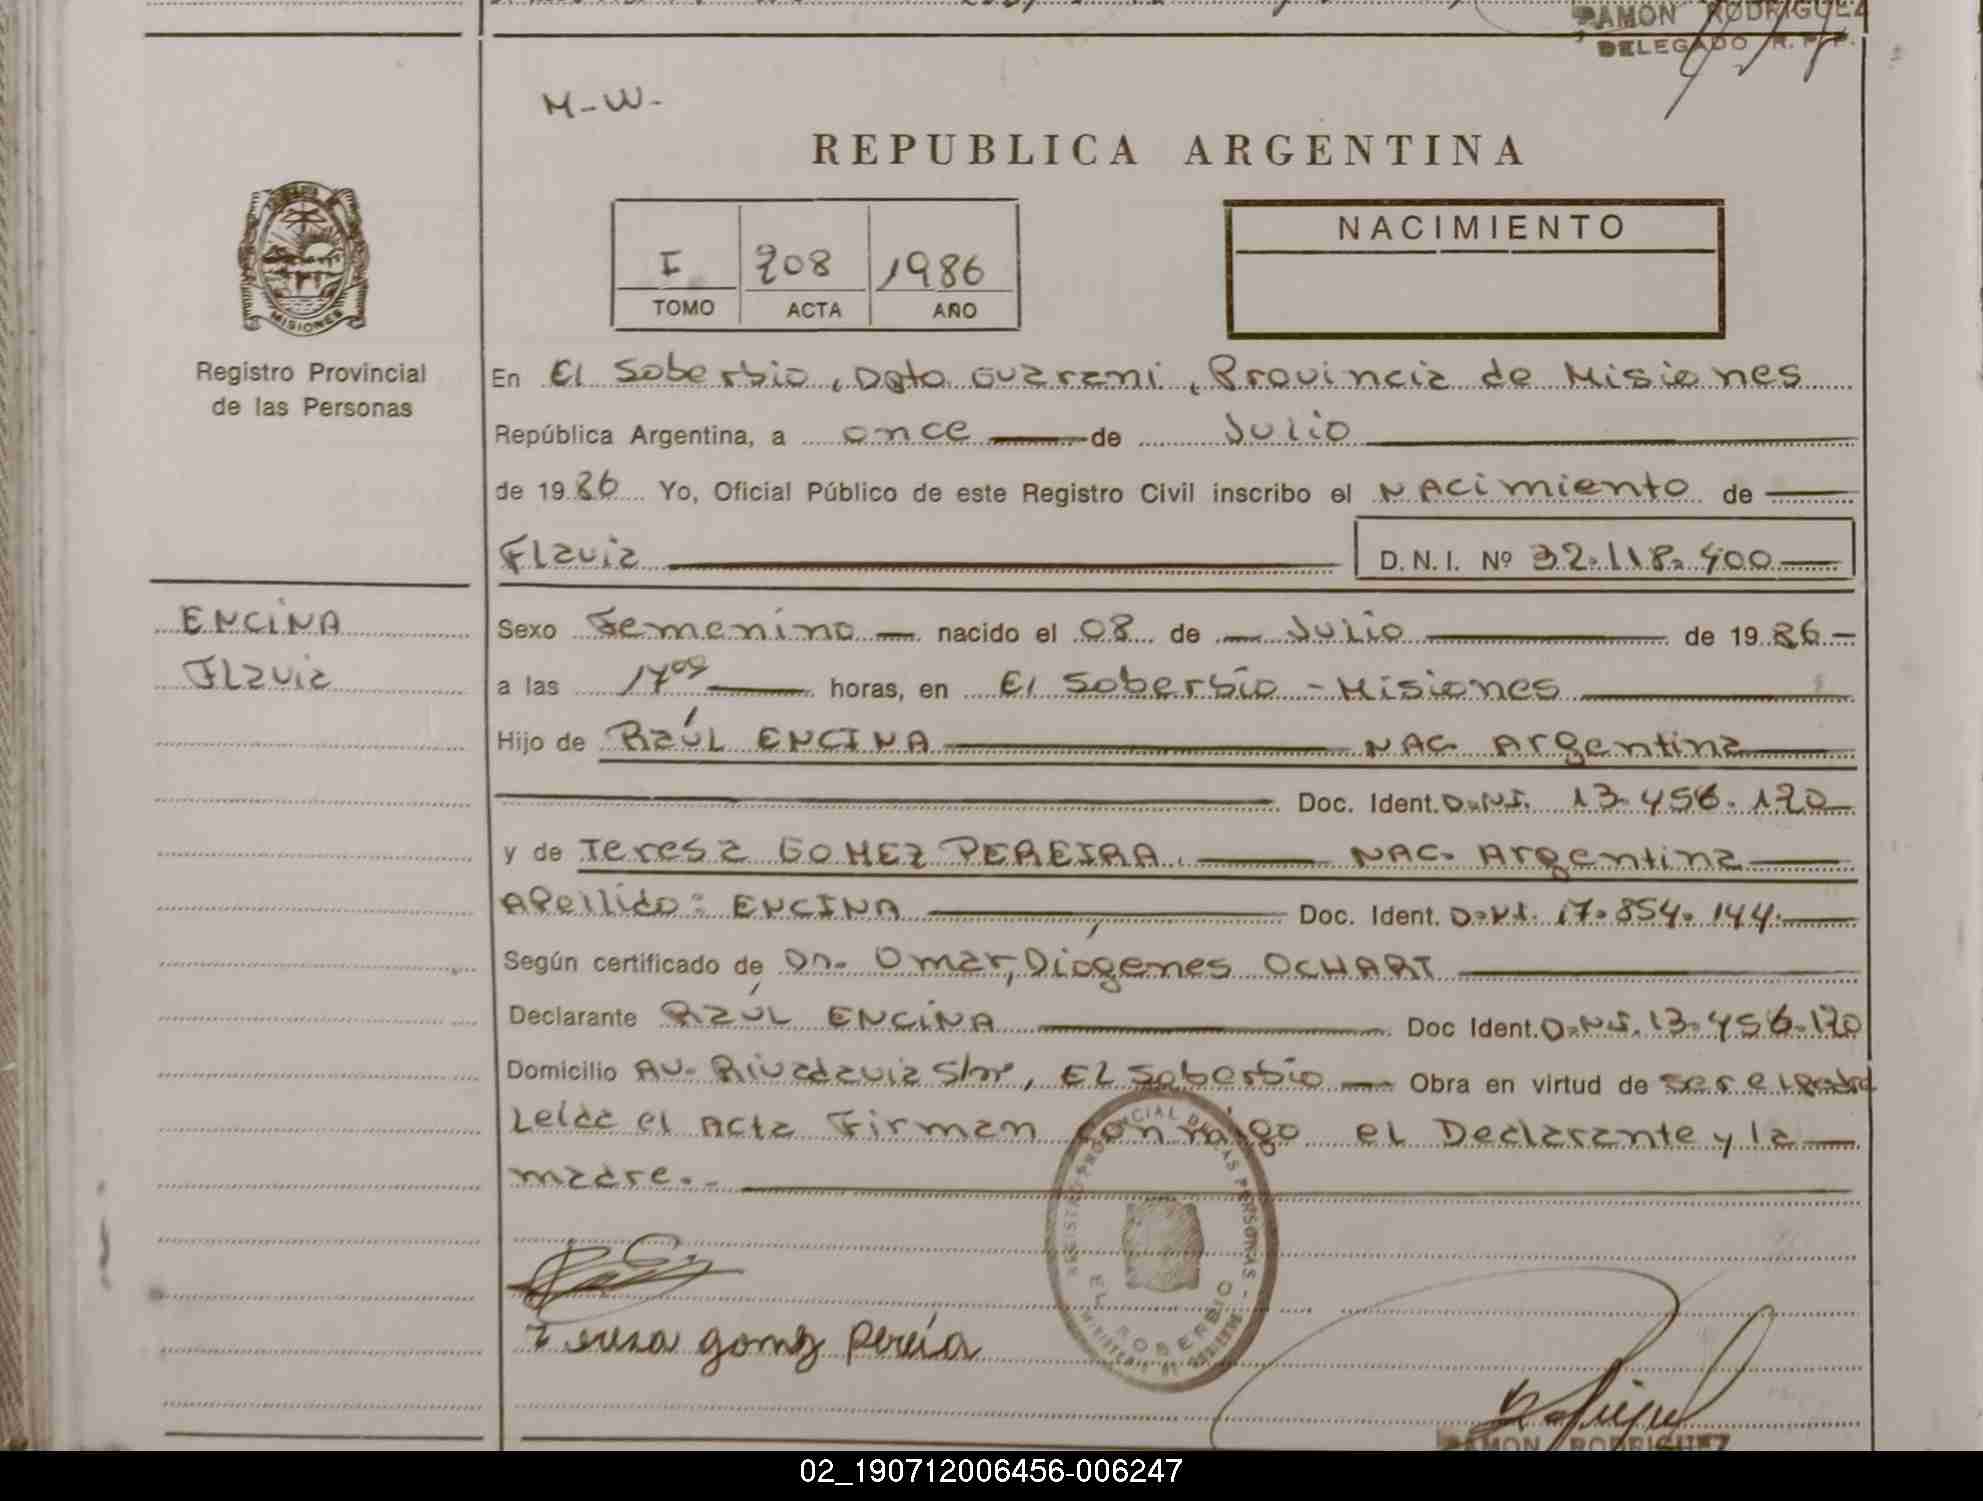 RAMON RODRIGUEZ
DELEGADO R. P. P.
M-W-
REPUBLICA ARGENTINA
NACIMIENTO
I 208 1986
TOMO ACTA AÑO
MISIONES
Registro Provincial
de las Personas
En El Soberbio, Dpto Guarani, Provincia de Misiones
República Argentina, a once de Julio
de 1986 Yo, Oficial Público de este Registro Civil inscribo el NACimiento de
Flavia D. N. I. Nº 32.118.400
ENCINA
Flavia
Sexo Femenino nacido el 08 de Julio de 1986
a las horas, en El Soberbio - Misiones
Hijo de RAÚL ENCINA NAC. Argentina
Doc. Ident. D.NI. 13.456.120
y de Teresa GOMEZ PEREIRA. NAC. Argentina
Apellido: ENCINA Doc. Ident. D.NI. 17.854.144.
Según certificado de Dr. Omar, Diógenes OCHART
Declarante RAÚL ENCINA Doc Ident. D.NI. 13.456.120
Domicilio AV. Rivadavia S/nº, EL Soberbio Obra en virtud de ser el padre
Leída el Acta Firman conmigo el Declarante y la
madre.-
REGISTRO PROVINCIAL DE LAS PERSONAS -
EL SOBERBIO
MINISTERIO DE GOBIERNO
Teresa gomez Pereia
RAMON RODRIGUEZ
02_190712006456-006247